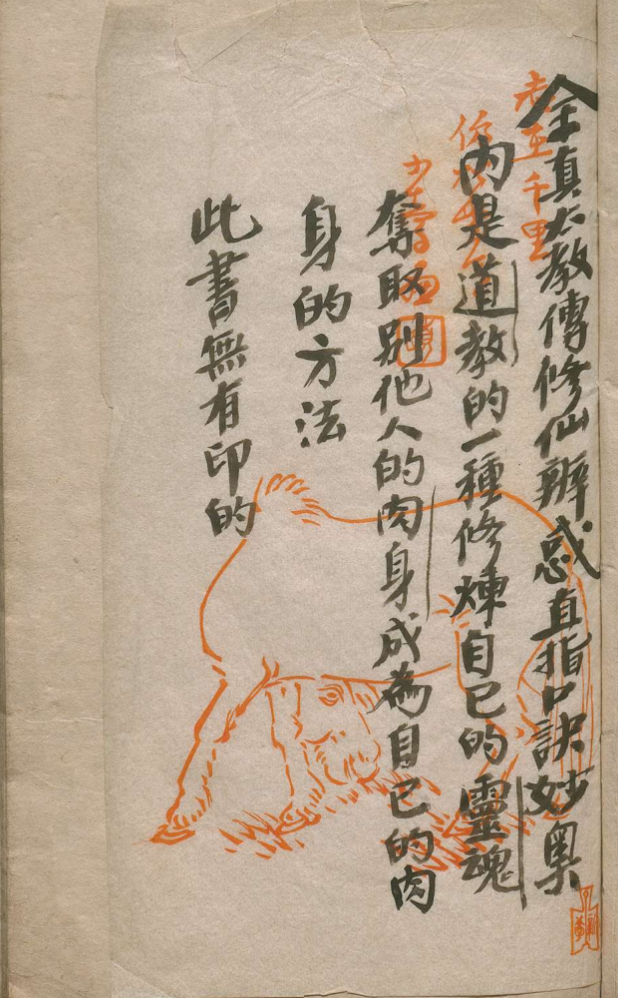 全真大教傳修仙辨惑直指口訣妙奧
内是道教的一種修煉自己的靈魂
奪取別他人的肉身成為自己的肉
身的方法
此書無有印的
千里